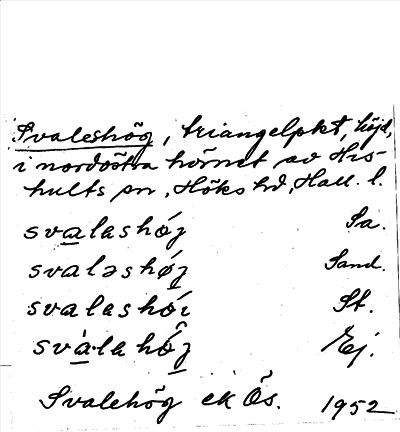 Svaleshög, triangelpkt, höjd,
i nordöstra hörnet av His-
hults sn, Höks hd, Hall. l.
svalashǿʒ Sa.
svaləshǿʒ Sand.
svalashöi St.
svàla hôʒ Ej.
Svalehög ek Ös. 1952